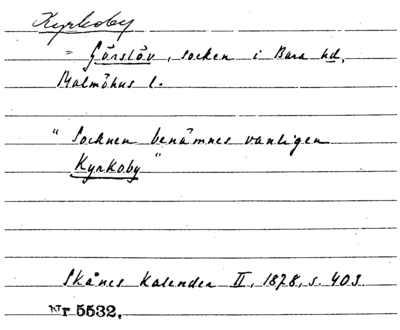 Kyrkoby
= Görslöv, socken i Bara hd.
Malmöhus l.
"Socknen benämnes vanligen
Kyrkoby"
Skånes Kalender II, 1878, s. 403.
Nr 5532.